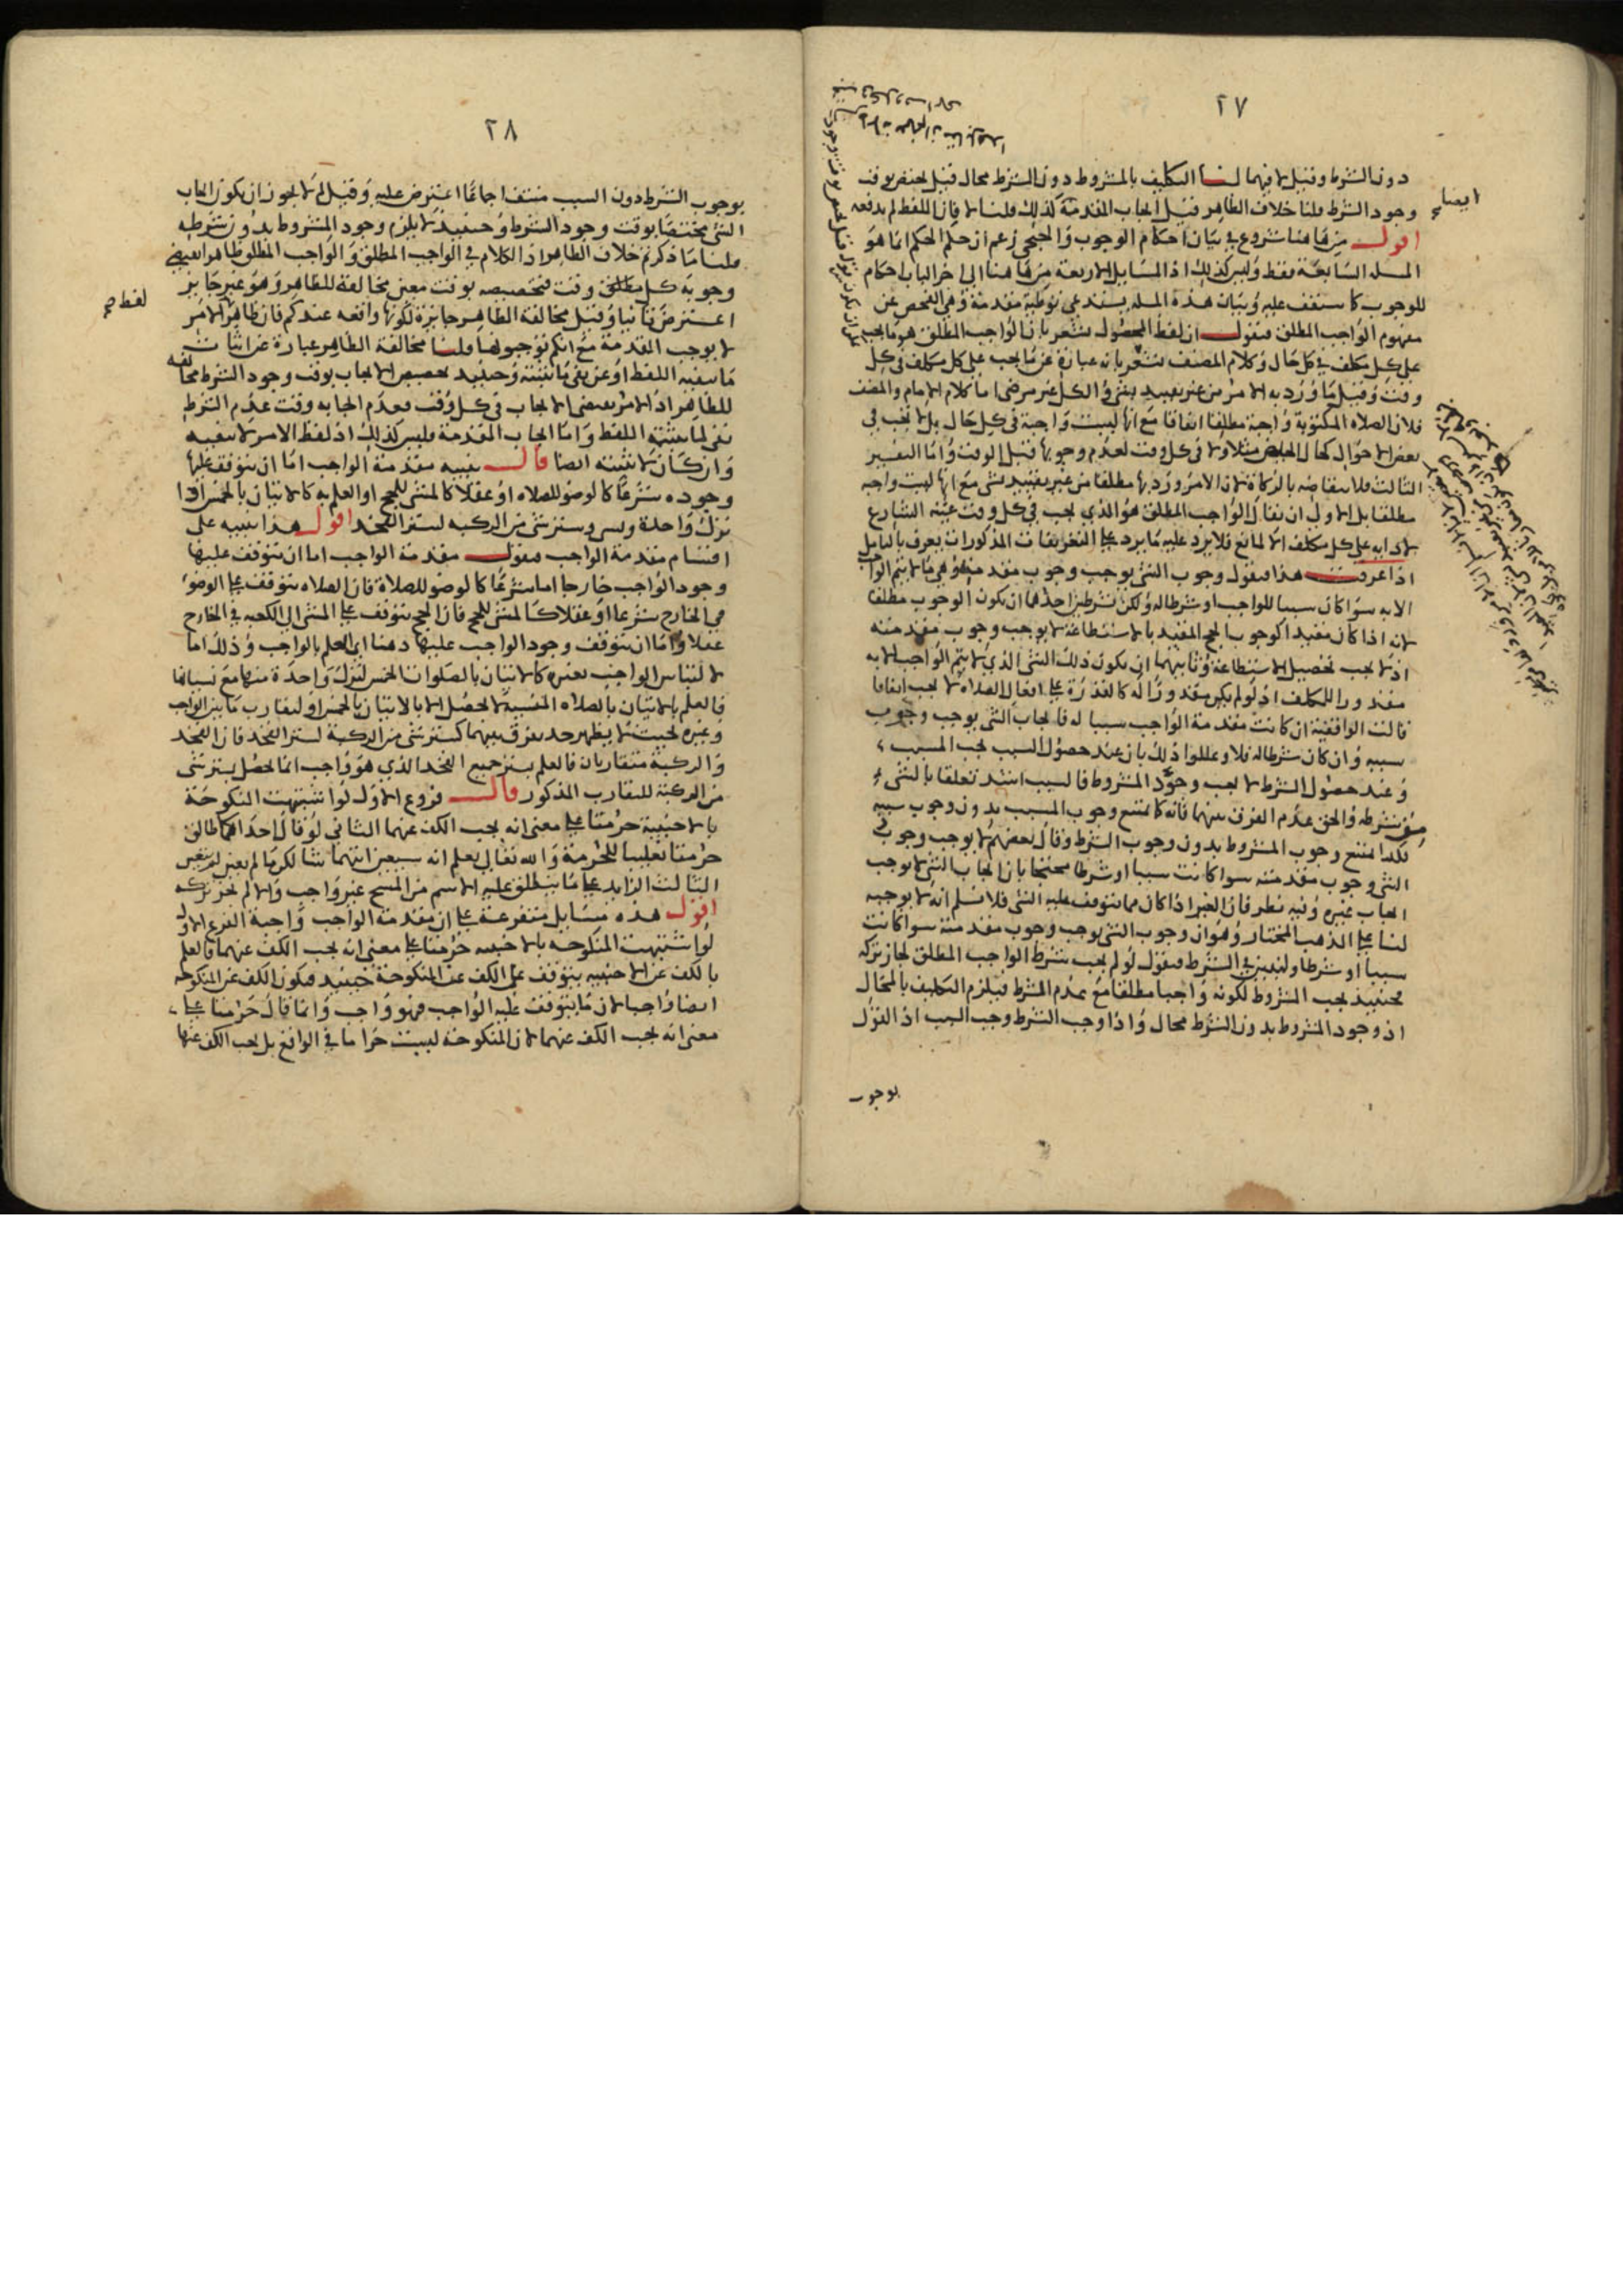 ٢٧
دون الشرط وقيل لا فيهما لنا التكليف بالمشروط دون الشرط محال قيل يختص بوقت
وجود الشرط قلنا خلاف الظاهر قيل ايجاب المقدمة كذلك قلنا لا فان اللفظ لم يدفعه
ايضا
اقول من هاهنا شروع في بيان احكام الوجوب زعم ان حكم الحكم انما هو
المسلة السابعة فقط وليس كذلك اذ المسايل الاربعة من هاهنا الى اخر الباب احكام
للوجوب كما ستقف عليه وبيان هذه المسلة يستدعي توطية مقدمة وهي الفحص عن
مفهوم الواجب المطلق فنقول ان لفظ المحصول يشعر بان الواجب المطلق هو ما يجب
على كل مكلف في كل حال وكلام المصنف يشعر بانه عبارة عن ما يجب على كل مكلف في كل
وقت وقيل ما ورد به الامر من غير تقييد بشي والكل غير مرضي اما كلام الامام والمصنف
فلان الصلاه المكتوبة واجبة مطلقا اتفاقا مع انها ليست واجبة في كل حال بل لا تجب في
بعض الاحوال كحال الحيض مثلا ولا في كل وقت لعدم وجوبها قبل الوقت واما التفسير
الثالث فلانتقاضه بالزكاة لان الامر ورد بها مطلقا من غير تقييد بشي مع انها ليست واجبة
مطلقا بل الاولى ان يقال الواجب المطلق هو الذي يجب في كل وقت عينه الشارع
لادايه على كل مكلف الا لمانع فلا يرد عليه ما يرد على التعريفات المذكورات يعرف بالتامل
اذا عرفت هذا فنقول وجوب الشي يوجب وجوب مقدمته وهي ما لا يتم الواجب
الا به سوا كان سببا للواجب او شرطا له ولكن بشرطين احدهما ان يكون الوجوب مطلقا
لانه اذا كان مقيدا كوجوب الحج المقيد بالاستطاعة لا يوجب وجوب مقدمته
اذ لا يجب تحصيل الاستطاعة وثانيهما ان يكون ذلك الشي الذي لا يتم الواجب الا به
مقدورا للمكلف اذ لو لم يكن مقدورا له كالقدرة على افعال الصلاه لا يجب اتفاقا
قالت الواقفية ان كانت مقدمة الواجب سببا له فايجاب الشي يوجب وجوب
سببه وان كان شرطا له فلا وعللوا ذلك بان عند حصول السبب يجب المسبب
وعند حصول الشرط لا يجب وجود المشروط فالسبب اشد تعلقا بالشيء
من شرطه والحق عدم الفرق بينهما فانه كما يمتنع وجوب المسبب بدون وجوب سببه
فكذا امتنع وجوب المشروط بدون وجوب الشرط وقال بعضهم لا يوجب وجوب
الشي وجوب مقدمته سوا كانت سببا او شرطا محتجا بان ايجاب الشي لا يوجب
ايجاب غيره وفيه نظر فان الغير اذا كان مما يتوقف عليه الشي فلا نسلم انه لا يوجبه
لنا على المذهب المختار وهو ان وجوب الشي يوجب وجوب مقدمته سوا كانت
سببا او شرطا ولنعين في الشرط فنقول لو لم يجب شرط الواجب المطلق لجاز تركه
فحينيذ يجب المشروط لكونه واجبا مطلقا مع عدم الشرط فيلزم التكليف بالمحال
اذ وجود المشروط بدون الشرط محال واذا وجب الشرط وجب السبب اذ القول
بوجوب
٢٨
بوجوب الشرط دون السبب منتف اجماعا اعترض عليه وقيل لم لا يجوز ان يكون ايجاب
الشي مختصا بوقت وجود الشرط وحينيذ لا يلزم وجود المشروط بدون شرطه
قلنا ما ذكرتم خلاف الظاهر اذ الكلام في الواجب المطلق والواجب المطلق ظاهر يقتضي
لفظ صح
وجوبه كل وقت فتخصيصه بوقت معين مخالفة للظاهر وهو غير جايز
اعترض ثانيا وقيل مخالفة الظاهر جايزة لكونها واقعه عندكم فان ظاهر الامر
لا يوجب المقدمة مع انكم توجبونها قلنا مخالفة الظاهر عبارة عن اثبات
ما ينفيه اللفظ او عن نفي ما يثبته وحينيذ تخصيص الايجاب بوقت وجود الشرط مخالفه
للظاهر اذ الامر يقتضي الايجاب في كل وقت فعدم ايجابه وقت عدم الشرط
نفي لما يثبته اللفظ واما ايجاب المقدمة فليس كذلك اذ لفظ الامر لا ينفيه
وان كان لا يثبته ايضا قال تنبيه مقدمة الواجب اما ان يتوقف عليها
وجوده شرعا كالوضو للصلاه او عقلا كالمشي للحج او العلم به كالاتيان بالخمس اذا
ترك واحدة ونسي وستر شي من الركبه لستر الفخذ اقول هذا تنبيه على
اقسام مقدمة الواجب فنقول مقدمة الواجب اما ان يتوقف عليها
وجود الواجب خارجا اما شرعا كالوضو للصلاة فان الصلاه يتوقف على الوضوء
في الخارج شرعا او عقلا كالمشي للحج فان الحج يتوقف على المشي الى الكعبه في الخارج
عقلا واما ان يتوقف وجود الواجب عليها ذهنا اي العلم بالواجب وذلك اما
لالتباس الواجب بغيره كالاتيان بالصلوات الخمس لترك واحدة منها مع نسيانها
فالعلم بالاتيان بالصلاه المنسية لا يحصل الا بالاتيان بالخمس او لتقارب ما بين الواجب
وغيره بحيث لا يظهر حد يفرق بينهما كستر شي من الركبة لستر الفخذ فان الفخذ
والركبة متقاربان فالعلم بستر جميع الفخذ الذي هو واجب انما يحصل بستر شي
من الركبة للتقارب المذكور قال فروع الاول لو اشتبهت المنكوحة
بالاجنبية حرمتا على معنى انه يجب الكف عنهما الثاني لو قال احداكما طالق
حرمتا تغليبا للحرمة والله تعالى يعلم انه سيعين ايتهما شا لكن ما لم يعين لم يتعين
الثالث الزايد على ما ينطلق عليه الاسم من المسح غير واجب والا لم يجز تركه
اقول هذه مسايل متفرعة على ان مقدمة الواجب واجبة الفرع الاول
لو اشتبهت المنكوحه بالاجنبيه حرمتا على معنى انه يجب الكف عنهما فالعلم
بالكف عن الاجنبيه يتوقف على الكف عن المنكوحة حينيذ فيكون الكف عن المنكوحه
ايضا واجبا لان ما يتوقف عليه الواجب فهو واجب وانما قال حرمتا على
معنى انه يجب الكف عنهما لان المنكوحة ليست حراما في الواقع بل يجب الكف عنها